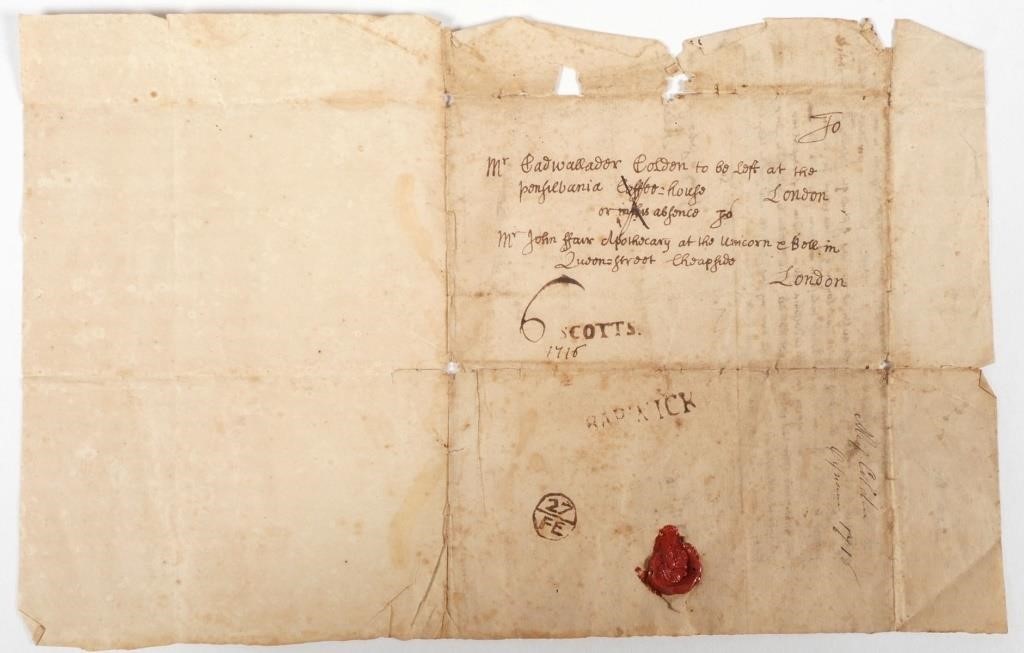 To
Mr Cadwallader Colden to be left at the
ponsilvania Coffee=house London
or in his absence To
Mr John ffair Apothecary at the Unicorn & Bell in
Queen=street Cheapside
London
6 SCOTTS.
1716
BARWICK
27
FE
Colden
1716